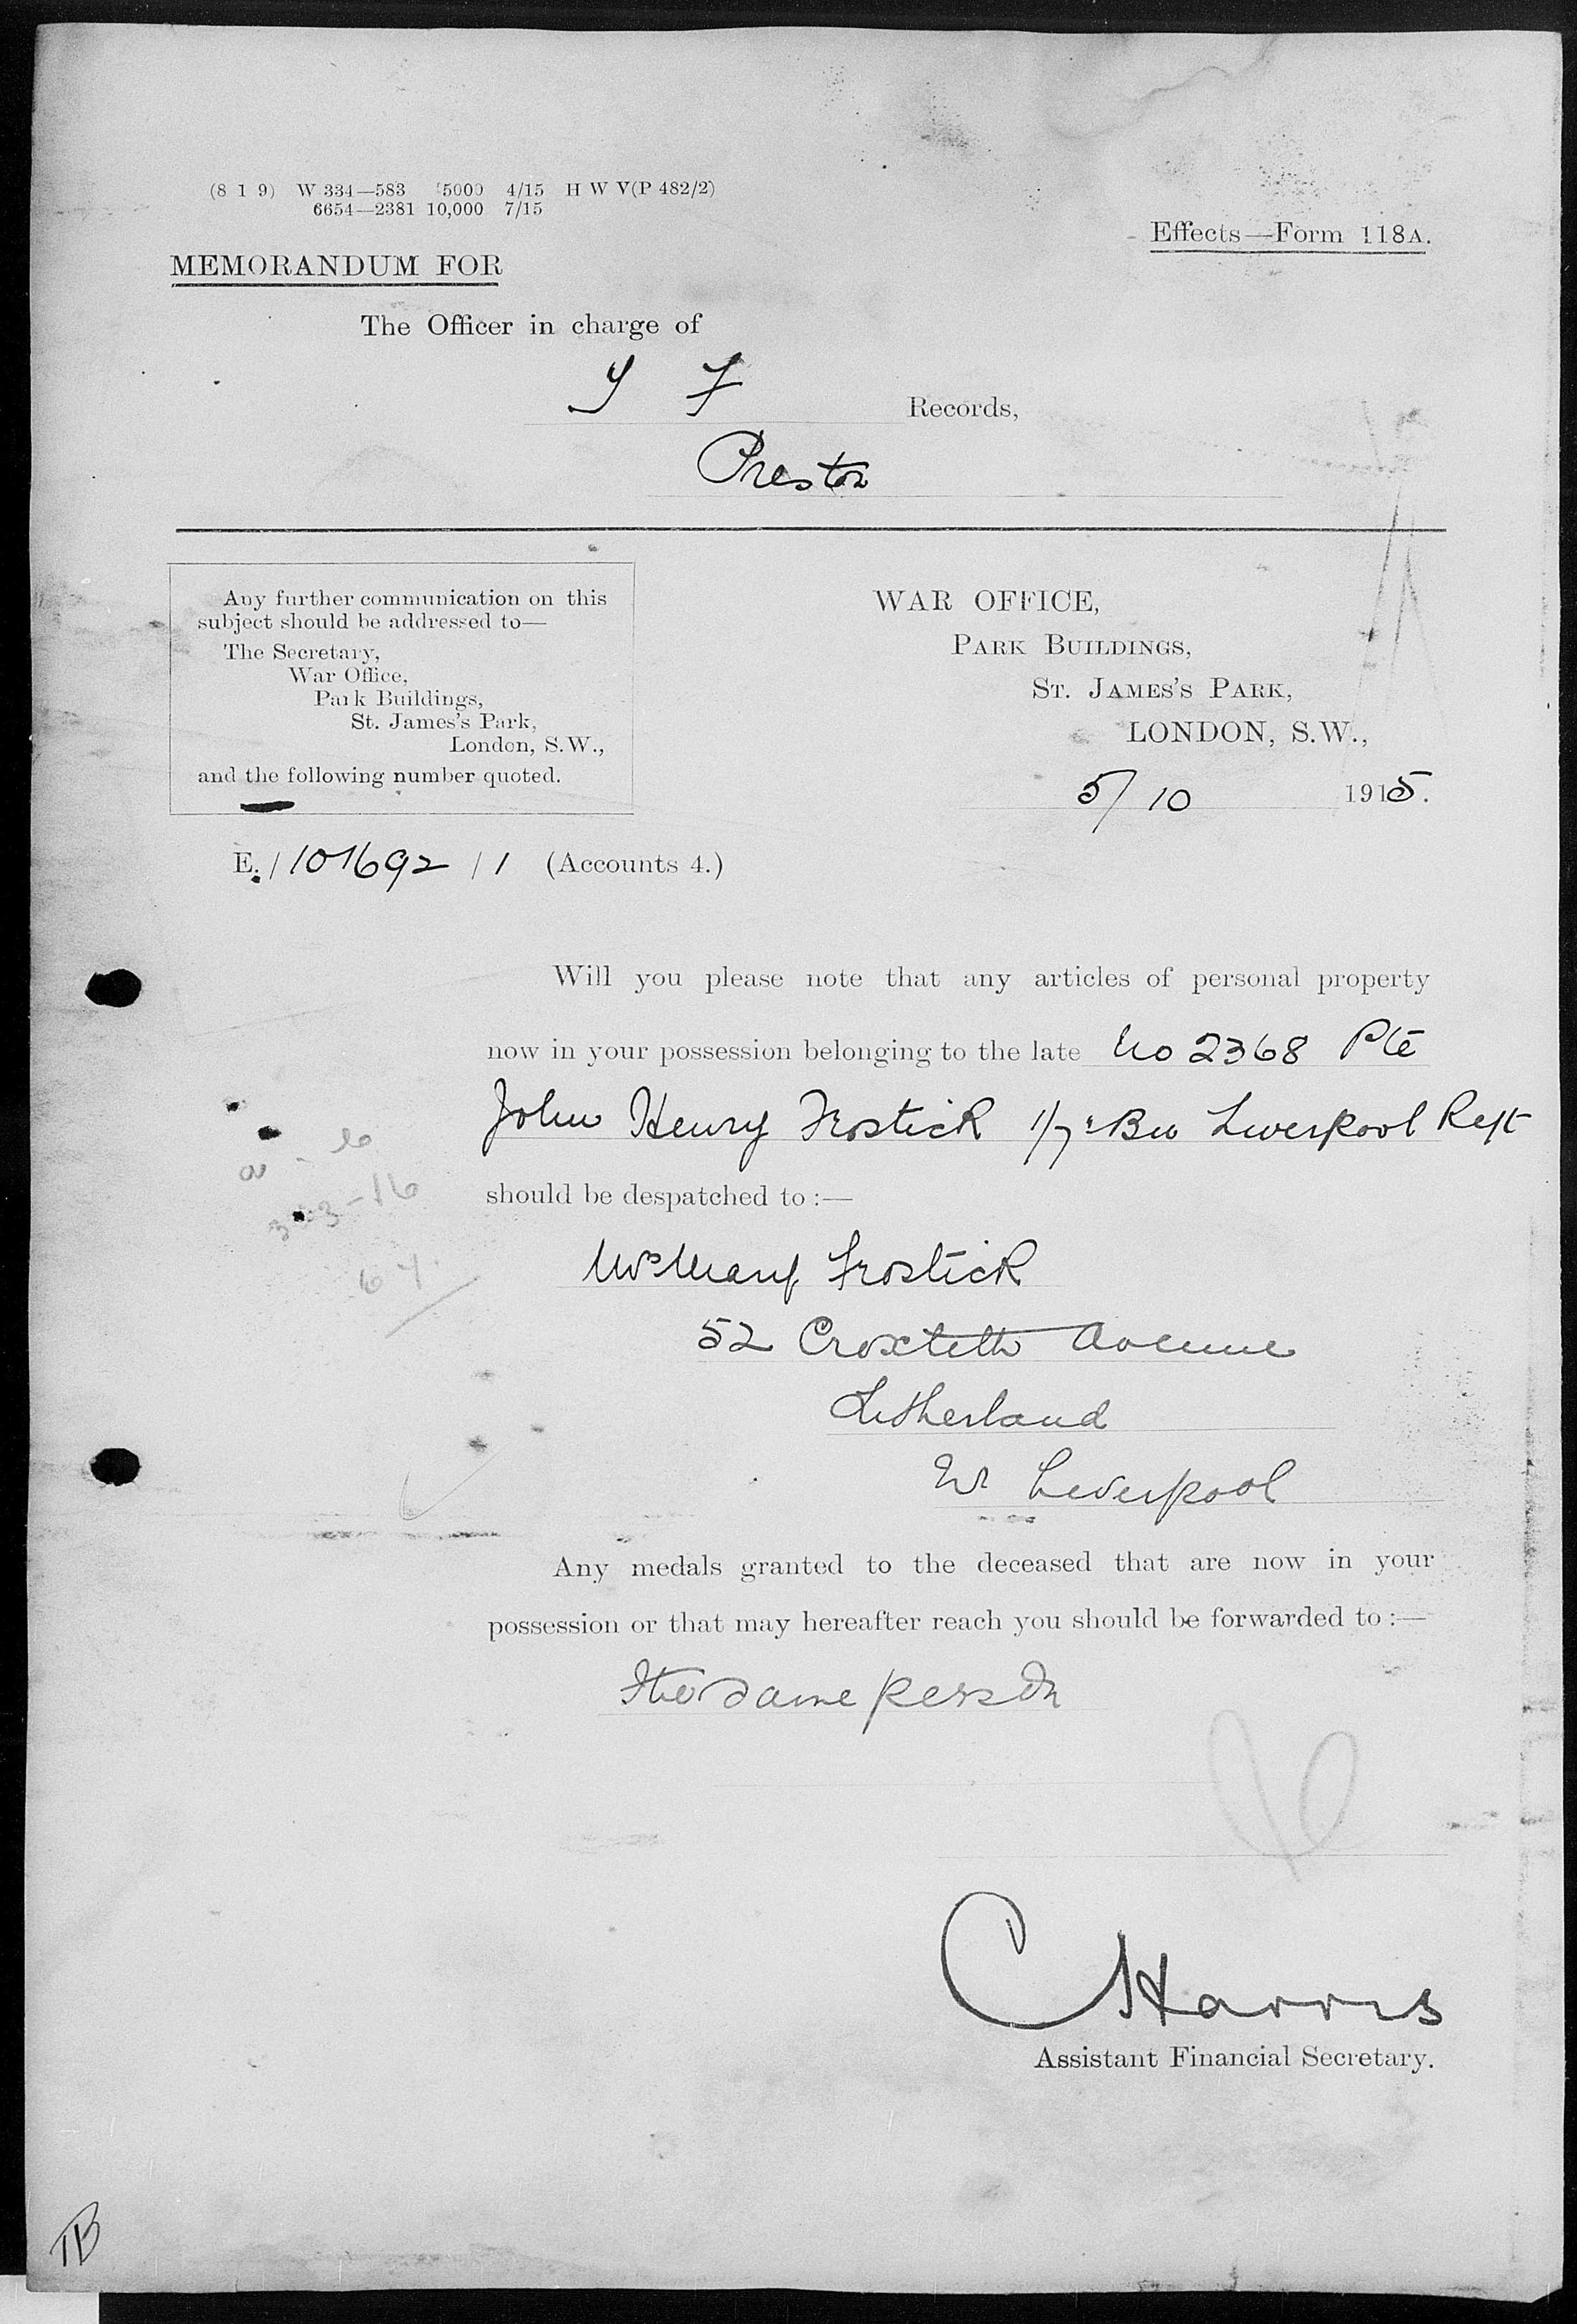 (8 1 9) W 334—583 5000 4/15 H W V(P 482/2)
6654—2381 10,000 7/15
Effects—Form 118A.
MEMORANDUM FOR
The Officer in charge of
Records,
Preston
Any further communication on this
subject should be addressed to—
The Secretary,
War Office,
Park Buildings,
St. James's Park,
London, S.W.,
and the following number quoted.
WAR OFFICE,
PARK BUILDINGS,
ST. JAMES'S PARK,
LONDON, S.W.,
5/10 1915.
E./101692/1 (Accounts 4.)
Will you please note that any articles of personal property
now in your possession belonging to the late No 2368 Pte
John Henry Frostick 1/7 Bn Liverpool Regt
should be despatched to :—
Mrs Mary Frostick
52 Croxteth Avenue
Litherland
Nr Liverpool
Any medals granted to the deceased that are now in your
possession or that may hereafter reach you should be forwarded to :—
the same person
C Harris
Assistant Financial Secretary.